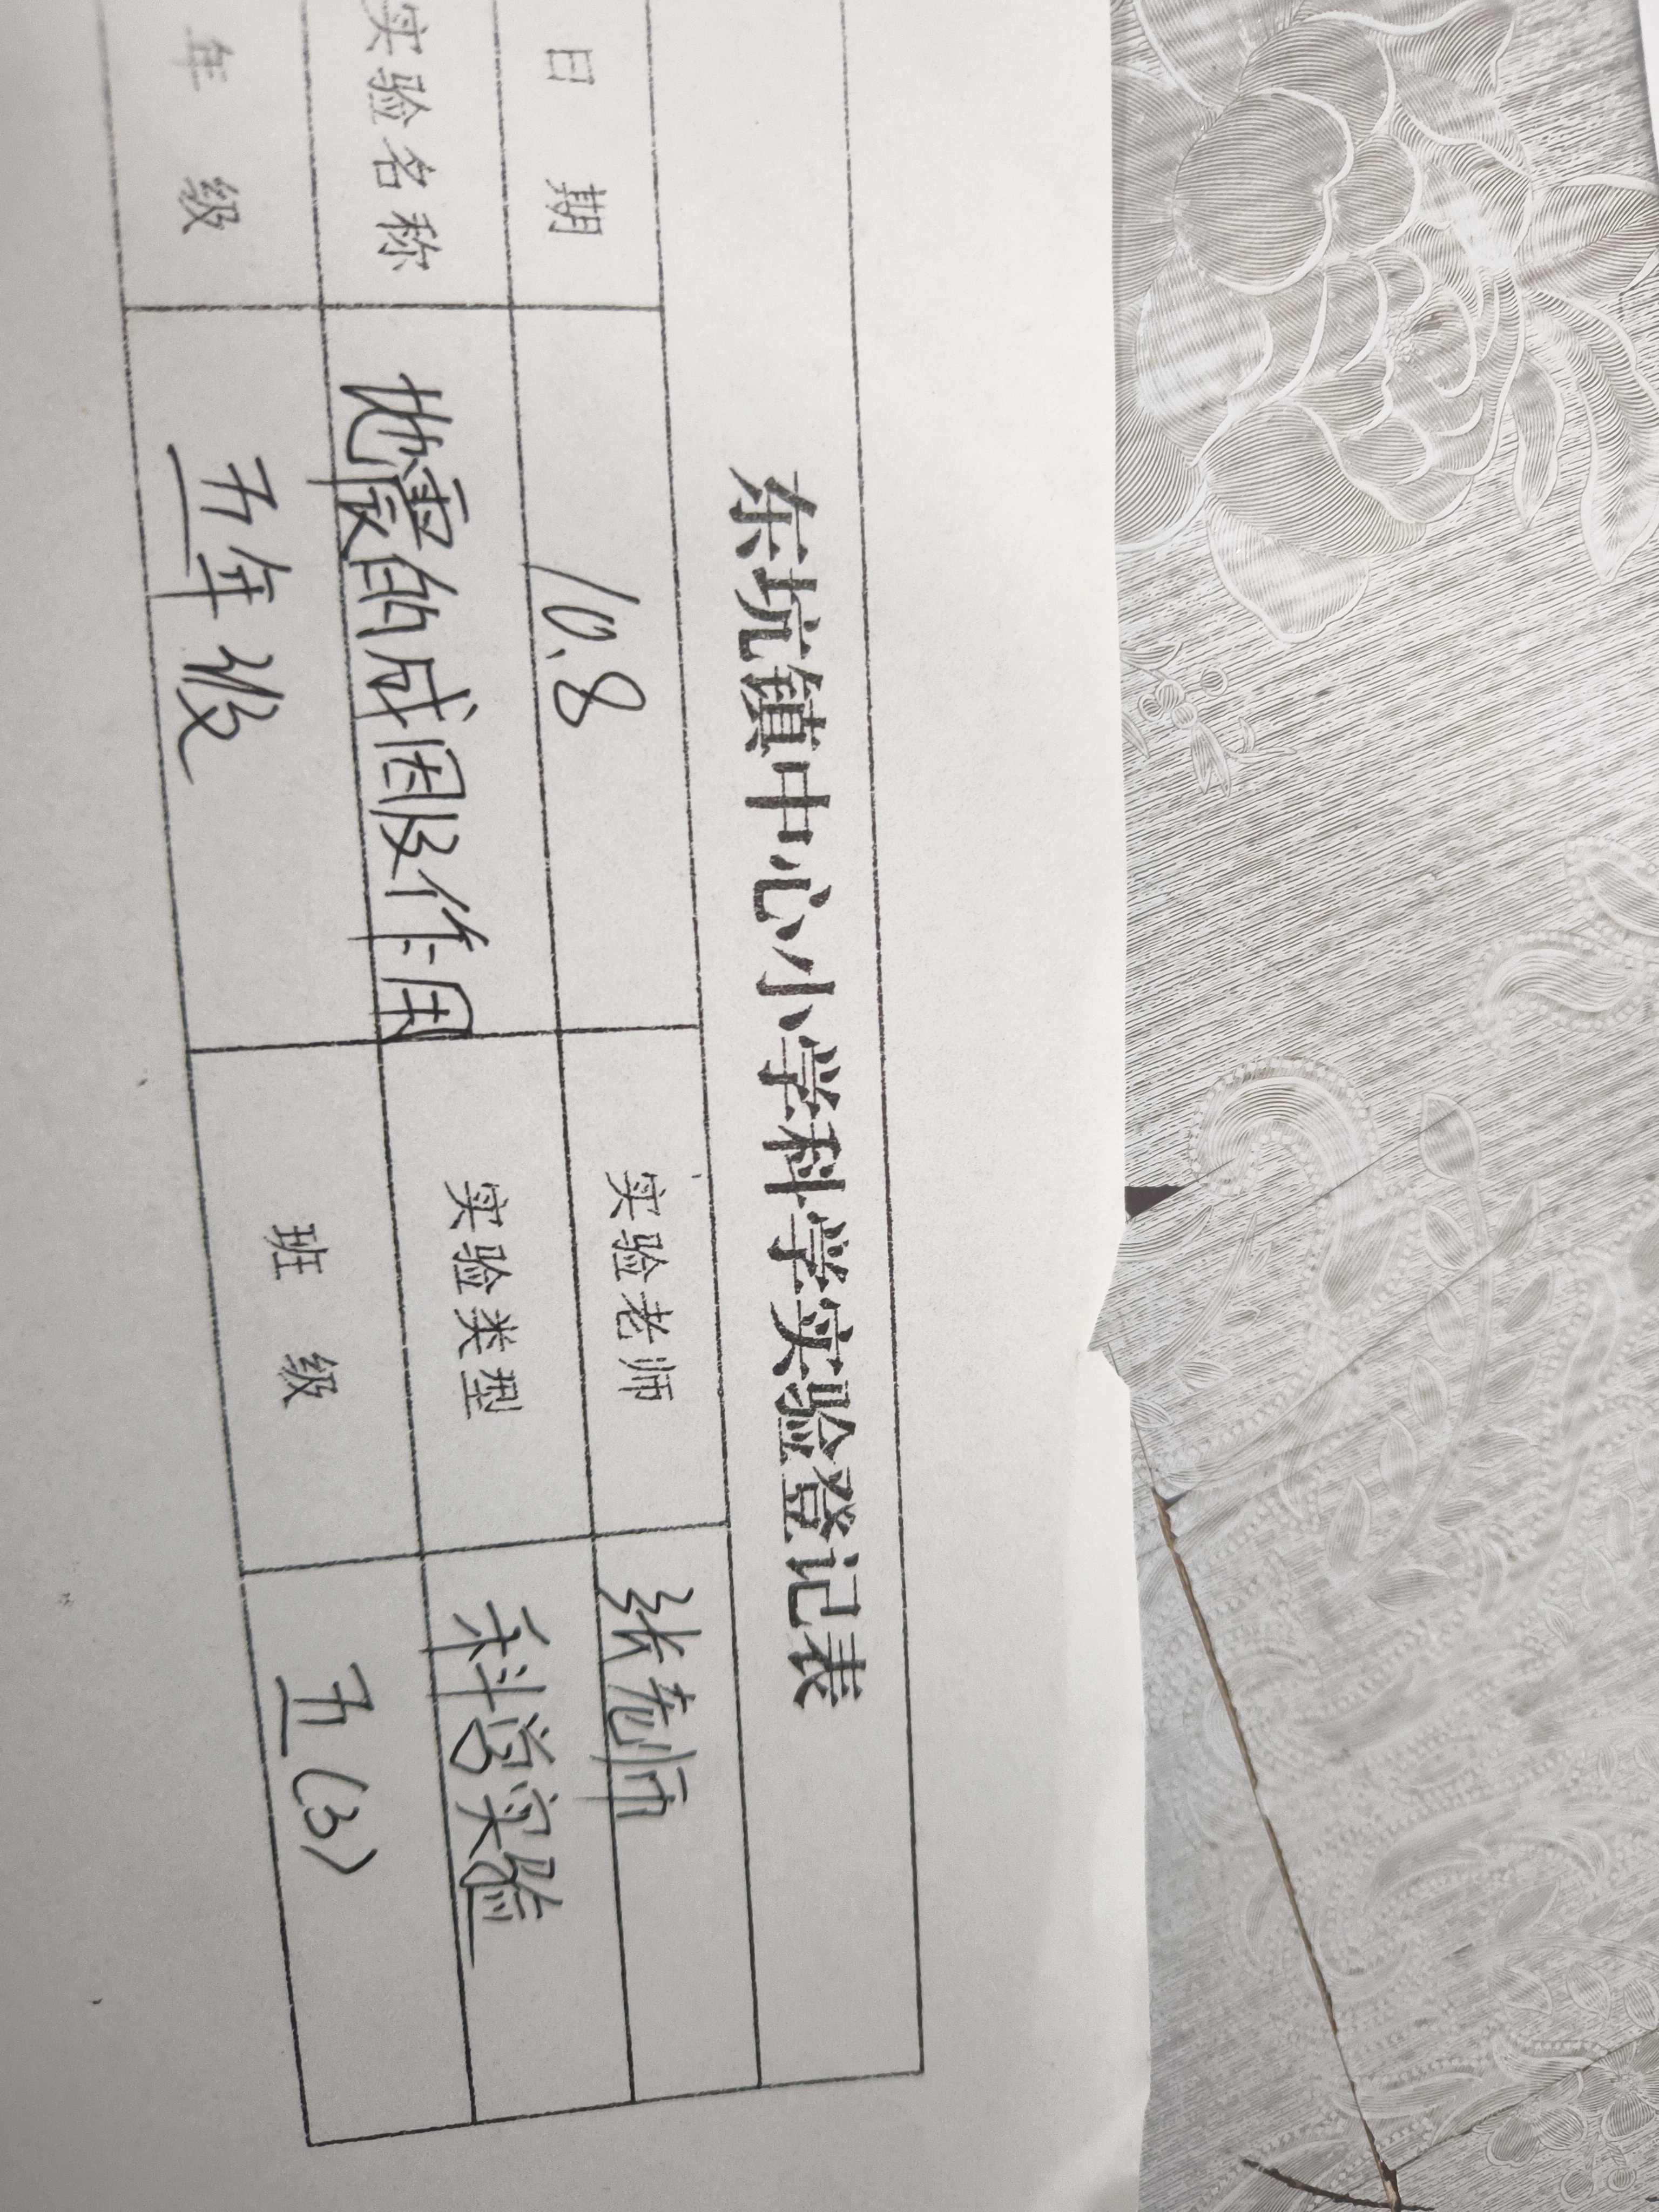 东坑镇中心小学科学实验登记表
日 期 10.8 实验老师 张老师
实验名称 地震的成因及作用 实验类型 科学实验
年 级 五年级 班 级 五(3)